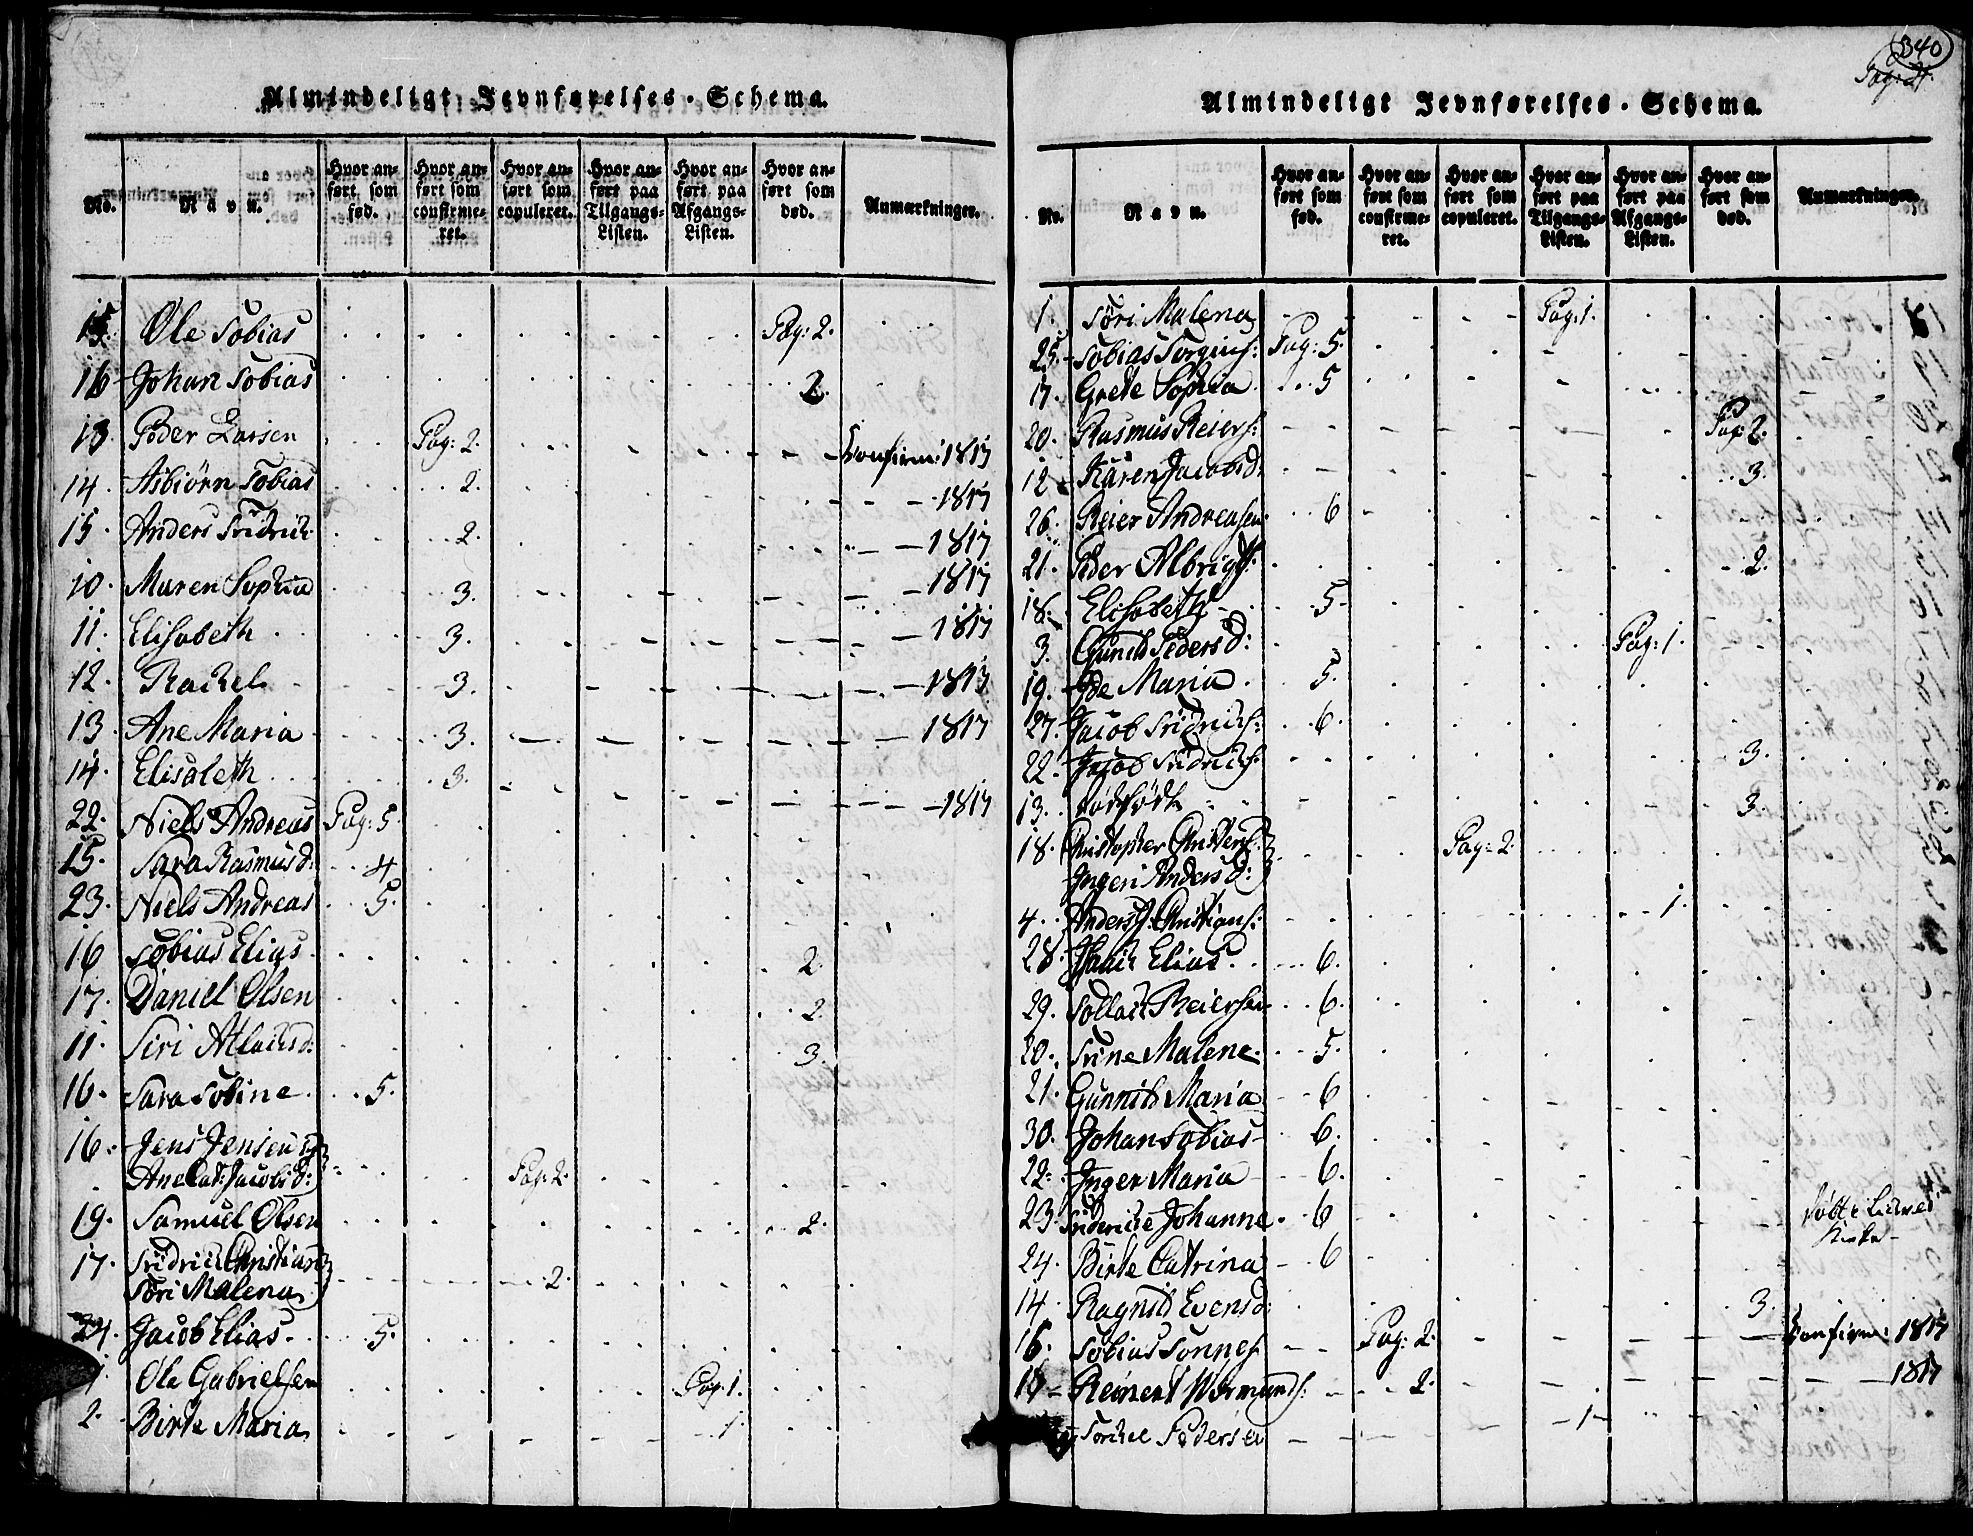 Almindeligt Jevnførelses-Schema.
No. Navn. Hvor anført som fød. Hvor anført som confirmeret. Hvor anført som copuleret. Hvor anført paa Tilgangs-Listen. Hvor anført paa Afgangs-Listen. Hvor anført som død. Anmærkninger.
15. Ole Tobias Pag: 2.
16 Johan Tobias 2.
13. Peder Larsen Pag: 2. Confirm: 1817
14. Asbiörn Tobias 2. 1817
15. Anders Fridrich 2. 1817
10. Maren Sophia 3. 1817
11. Elisabeth 3. 1817
12. Rachel 3. 1817
13. Ane Maria 3. 1817
14. Elisabeth 3. 1817
22. Niels Andreas Pag: 5.
15. Sara Rasmusd: 4
23. Niels Andreas 5.
16 Tobias Elias 2.
17. Daniel Olsen 2.
11. Siri Atlachsd: 3.
16. Sara Tobine 5.
16. Jens Jensen og
Ane Cat: Jacobsd: Pag: 2.
19. Samuel Olsen 2.
17. Fridrich Christian
Tøri Malena 2.
24. Jacob Elias 5.
1. Ole Gabrielsen Pag: 1.
2. Birte Maria 1.
340
Pag: 21.
Almindeligt Jevnførelses-Schema.
No. Navn. Hvor anført som fød. Hvor anført som confirmeret. Hvor anført som copuleret. Hvor anført paa Tilgangs-Listen. Hvor anført paa Afgangs-Listen. Hvor anført som død. Anmærkninger.
1. Töri Malena Pag: 1.
25. Tobias Torgius: Pag: 5.
17. Grete Sophia 5
20. Rasmus Reiers: Pag: 2.
12 Karen Jacobsd: 3.
26. Reier Andreasen 6
21. Peder Albrigts: 2.
18. Elisabeth 5.
3. Gunild Peders D: Pag: 1.
19. Ide Maria 5.
27. Jacob Fridrichs: 6.
22. Jacob Fridrichs: 3.
13. Dødfødt 3.
18. Christopher Christens:
Ingeri Anders D: Pag: 2.
4. Anders J: Christians: 1.
28. Isaich Elias 6.
29. Tollach Reiersen 6.
20. Trine Malene 5.
21. Gunnild Maria 6
30. Johan Tobias 6.
22. Inger Maria 6.
23. Friderice Johanne 6
24. Birte Catrina 6
14. Ragnild Evensd: 3.
16. Tobias Tønnes: Pag: 2. Confirm: 1817
Reinert Wormunds: 2. 1817
Torkel Pedersen 1